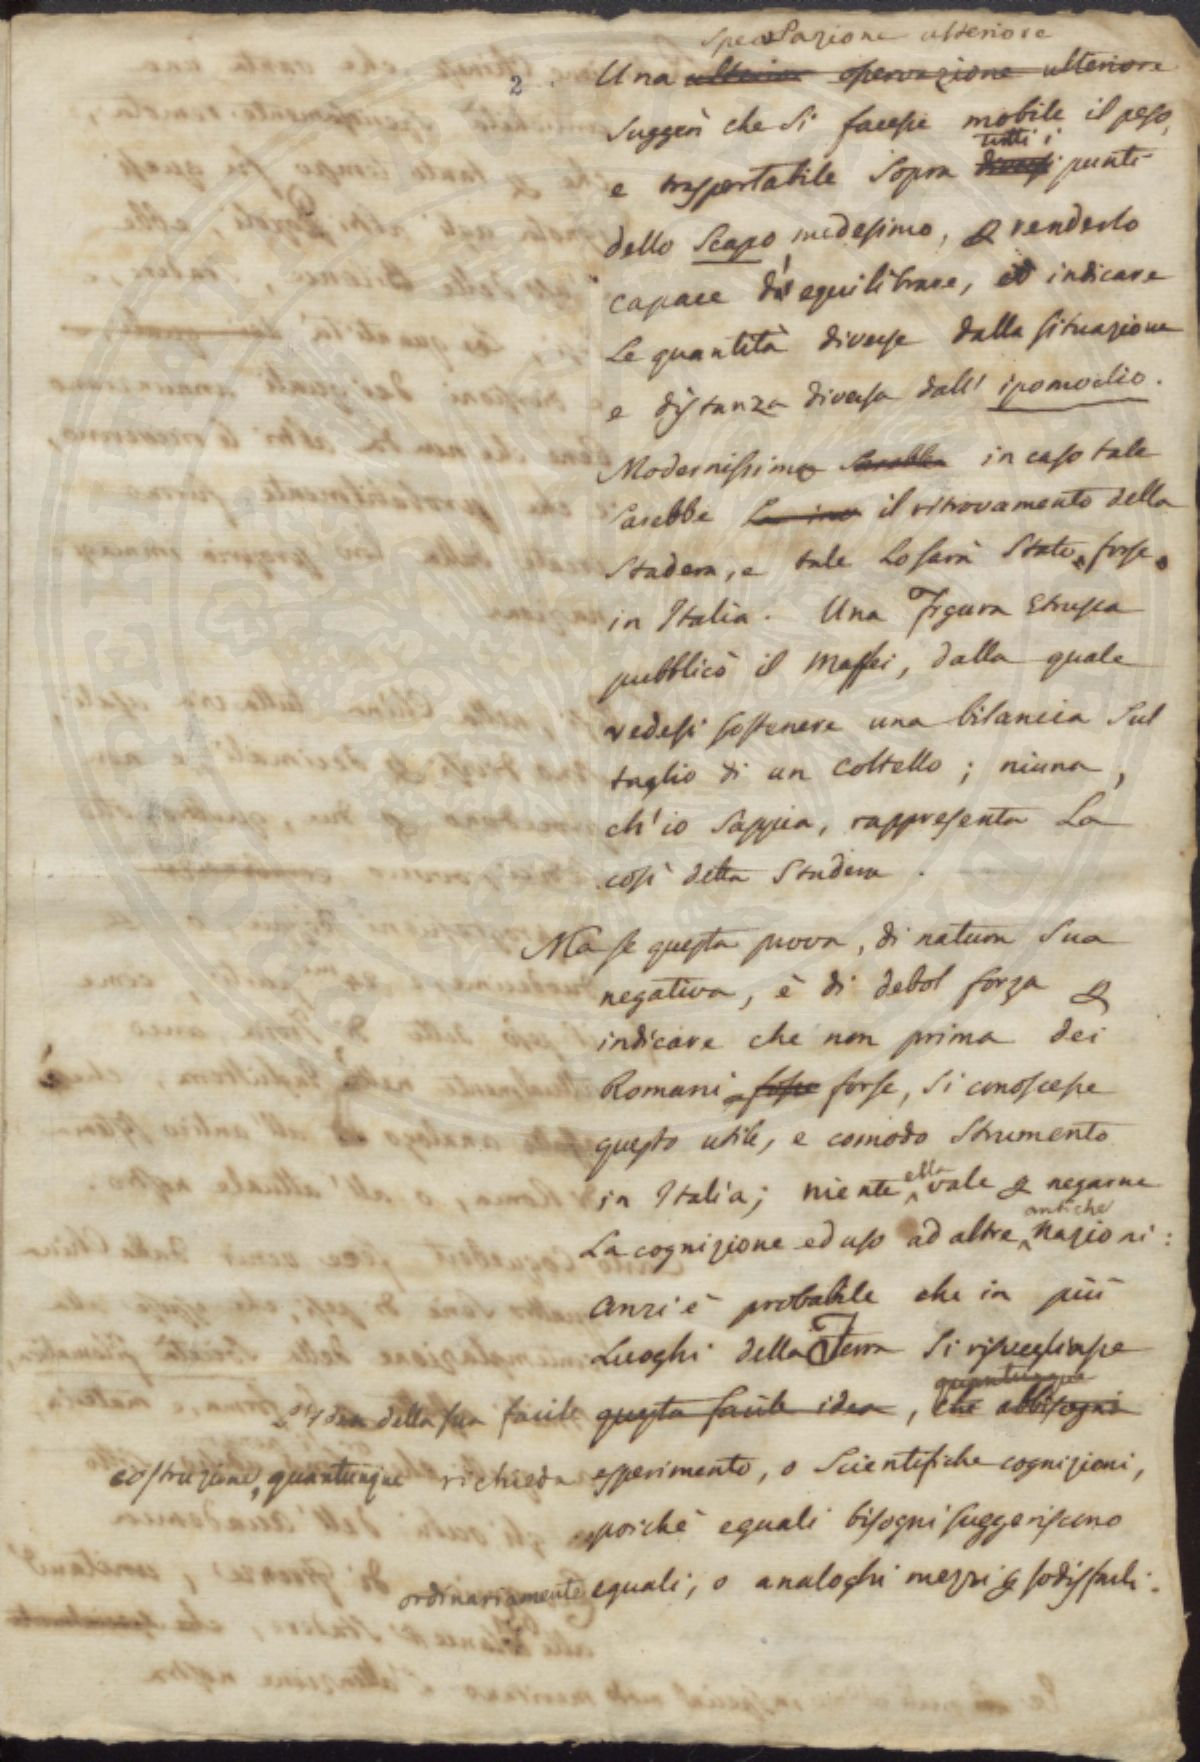 speculazione ulteriore
2. Una ulterior osservazione ulteriore
suggerì che si facesse mobile il peso,
tutti i
e trasportabile sopra diversi punti
dello scapo medesimo, per renderlo
capace di equilibrare, ed indicare
le quantità diverse dalla situazione
e distanza diversa dall' ipomoclio.
Modernissimo sarebbe in caso tale
sarebbe il ritrovamento della
stadera, e tale lo sarà stato forse
in Italia. Una Figura Etrusca
pubblicò il Maffei, dalla quale
vedesi sostenere una bilancia sul
taglio di un coltello; niuna,
ch'io sappia, rappresenta la
così detta stadera.
Ma se questa prova, di natura sua
negativa, è di debol forza per
indicare che non prima dei
Romani fosse forse, si conoscesse
questo utile, e comodo strumento
in Italia; niente ella vale per negarne
antiche
la cognizione ed uso ad altre nazioni:
anzi è probabile che in più
luoghi della Terra si risvegliasse
quantunque
L'Idea della sua facile questa facile idea, che abbisogni
costruzione, quantunque richieda esperimento, o scientifiche cognizioni,
poichè eguali bisogni suggeriscono
ordinariamente eguali, o analoghi mezzi per sodisfarli.